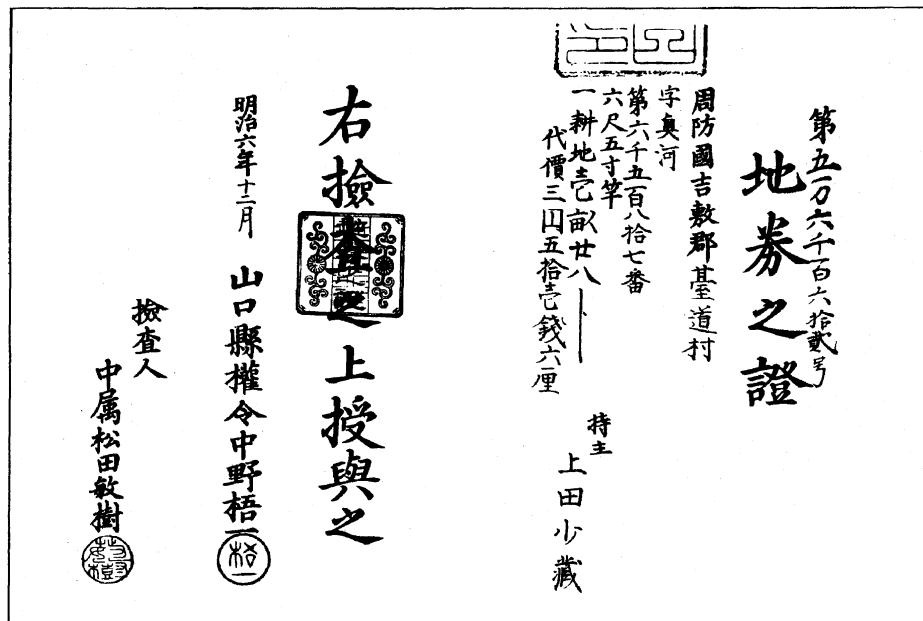 第五万六千百六拾貳号
地券之證
周防國吉敷郡臺道村
字奥河
第六千五百八拾七番
六尺五寸竿
一耕地壱畝廿八
代價三円五拾壱錢六厘
持主
上田少藏
右撿査之上授與之
明治六年十二月
山口縣權令中野梧一
撿査人
中属松田敏樹
梧一
敏樹